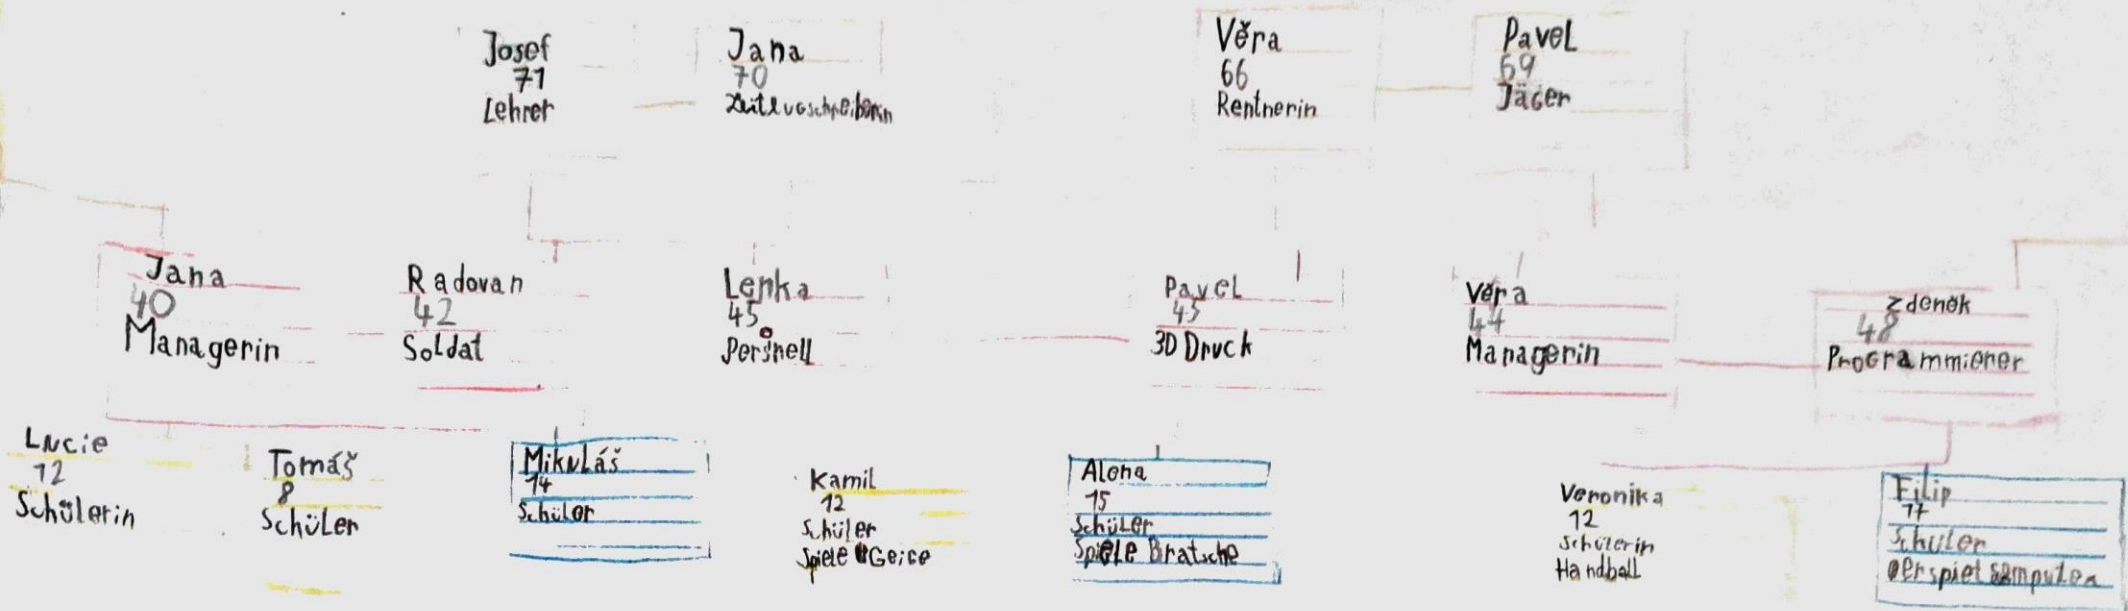 Josef
71
Lehrer
Jana
70
Věra
66
Rentnerin
Pavel
69
Jäger
Jana
40
Managerin
Radovan
42
Soldat
Lenka
45
Persnell
Pavel
45
3D Druck
Věra
44
Managerin
Zdeněk
48
Programmierer
Lucie
12
Schülerin
Tomáš
8
Schüler
Mikuláš
14
Schüler
Kamil
12
Schüler
Spiele Geige
Alena
15
Schüler
Spiele Bratsche
Veronika
12
Schülerin
Handball
Filip
17
Schuler